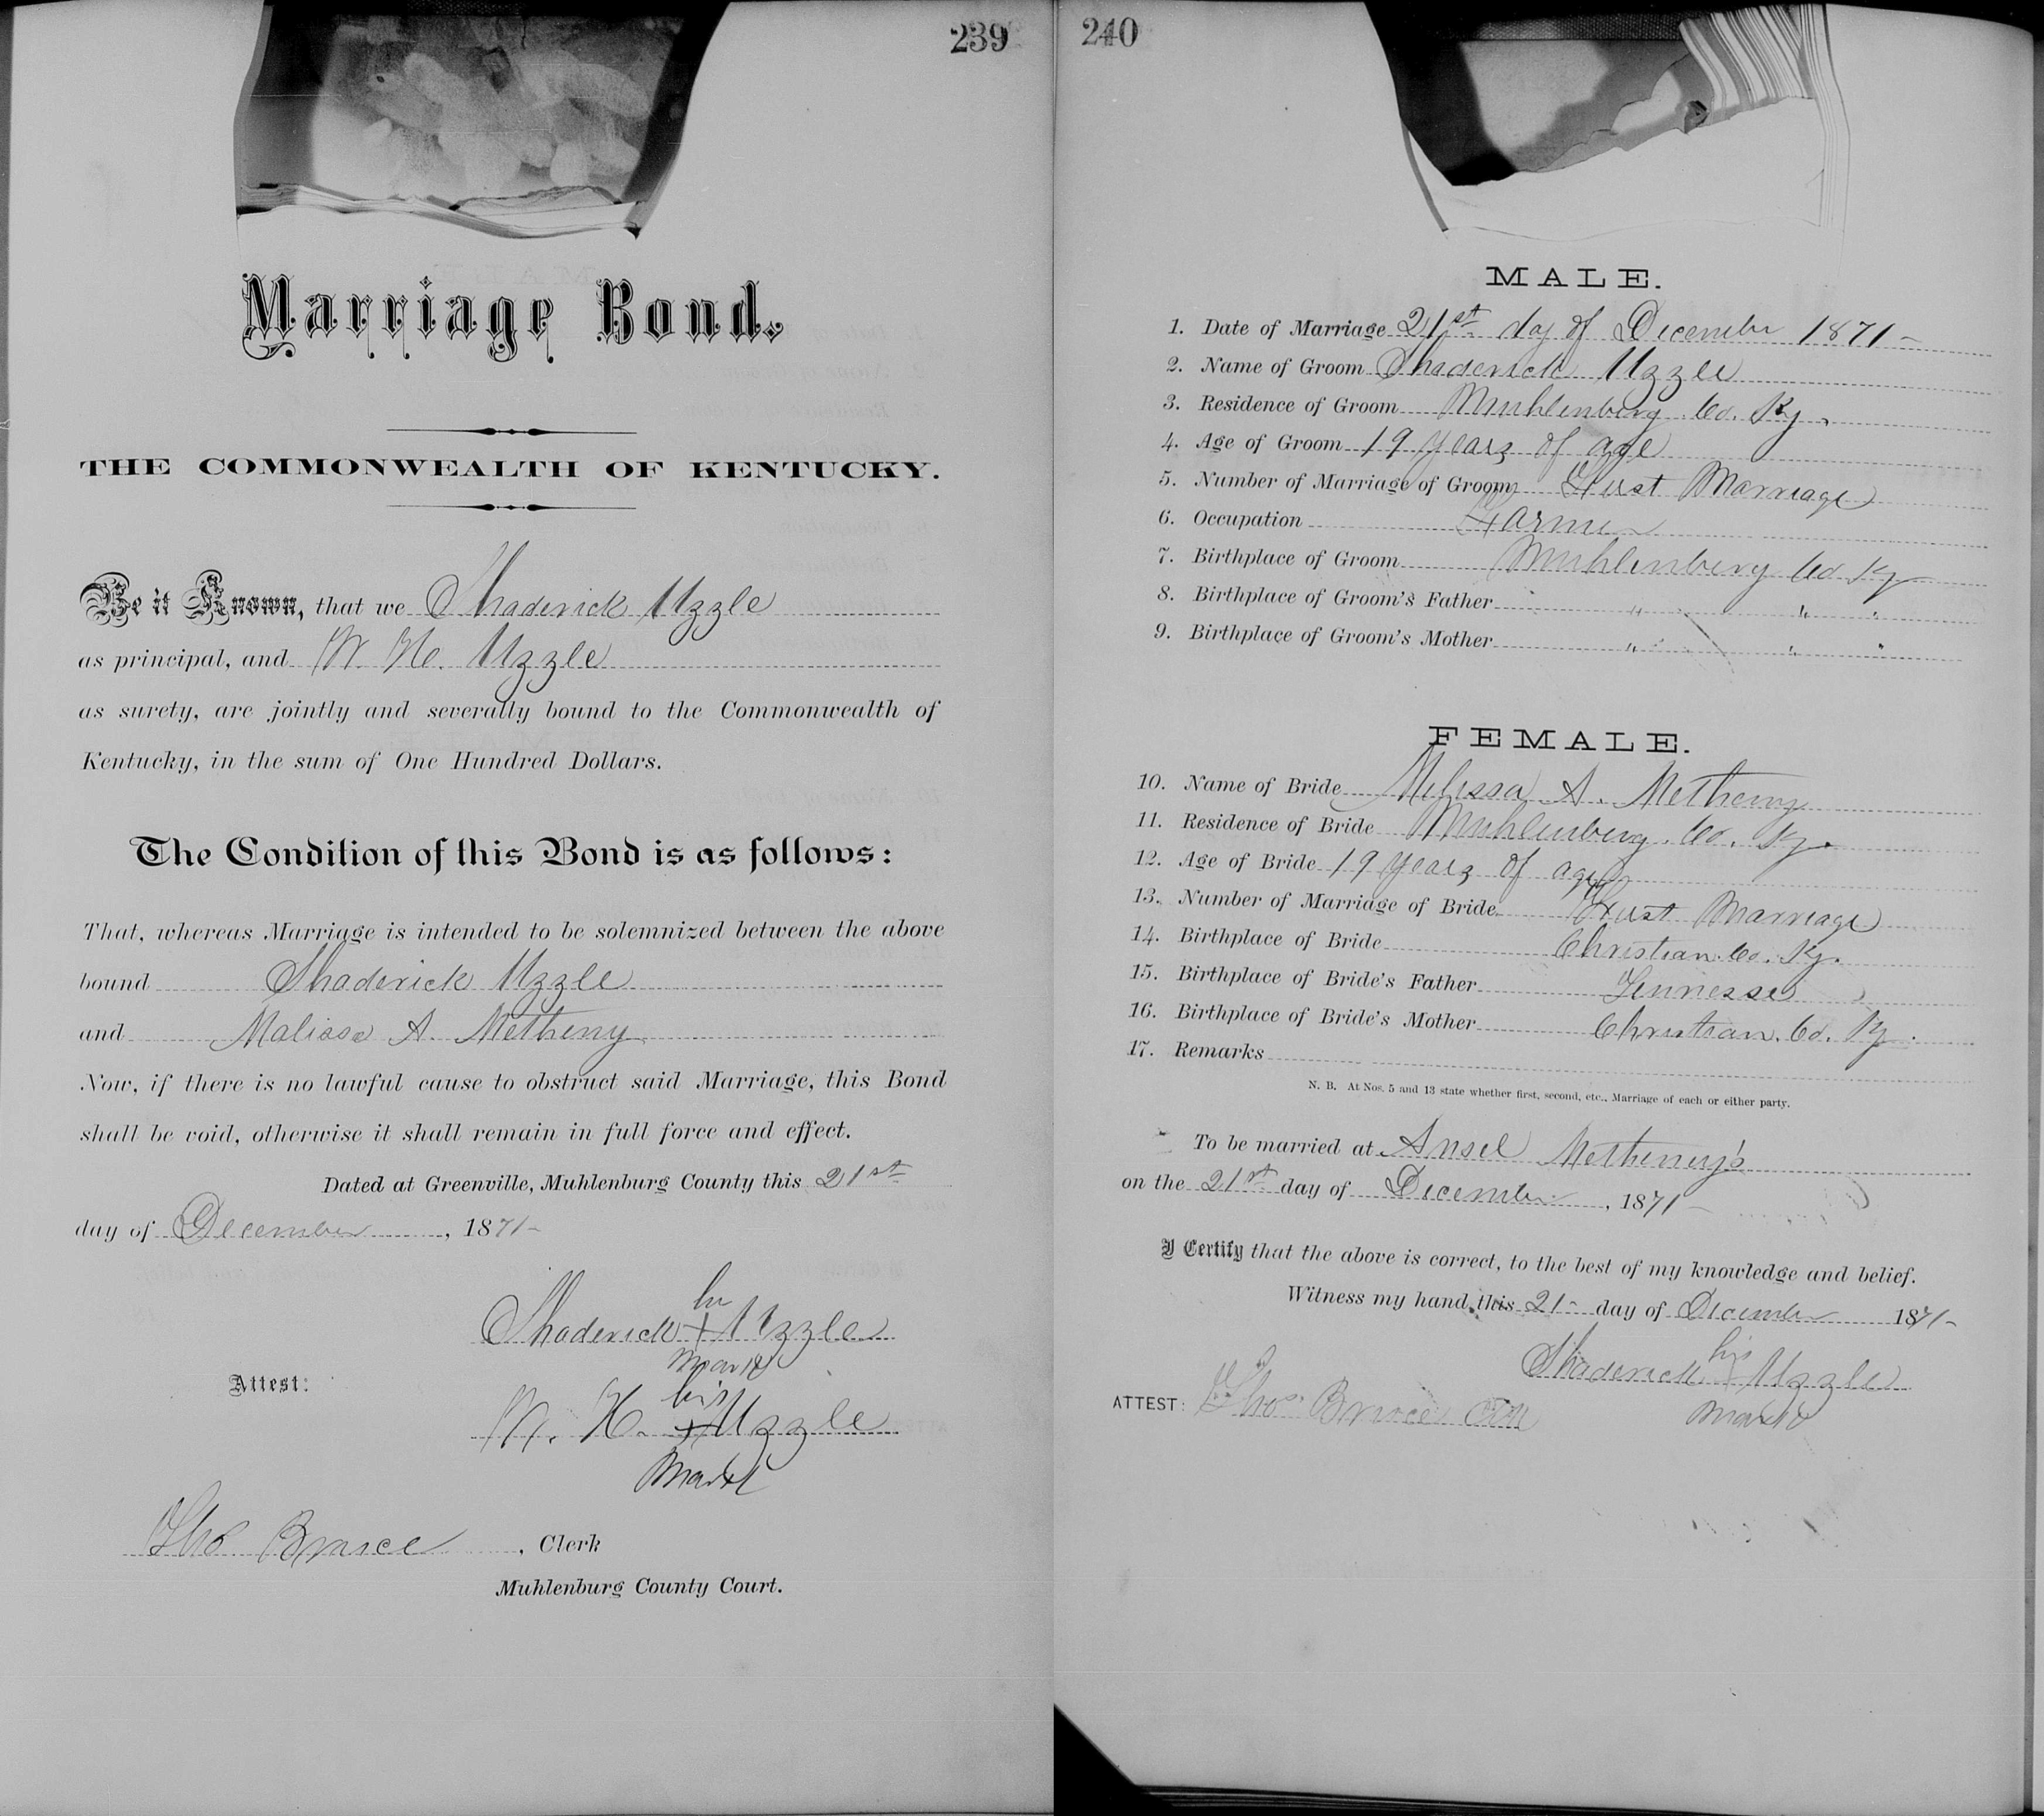 239
Marriage Bond.
THE COMMONWEALTH OF KENTUCKY.
Be it Known, that we Shaderick Uzzle
as principal, and W. H. Uzzle
as surety, are jointly and severally bound to the Commonwealth of
Kentucky, in the sum of One Hundred Dollars.
The Condition of this Bond is as follows:
That, whereas Marriage is intended to be solemnized between the above
bound Shaderick Uzzle
and Malissa A. Metheny
Now, if there is no lawful cause to obstruct said Marriage, this Bond
shall be void, otherwise it shall remain in full force and effect.
Dated at Greenville, Muhlenburg County this 21st
day of December, 1871-
his
Shaderick + Uzzle
mark
Attest:
his
W. H. + Uzzle
Mark
Tho Bruce, Clerk
Muhlenburg County Court.
240
MALE.
1. Date of Marriage 21st day of December 1871-
2. Name of Groom Shaderick Uzzle
3. Residence of Groom Muhlenburg Co. Ky.
4. Age of Groom 19 years of age
5. Number of Marriage of Groom First Marriage
6. Occupation Farmer
7. Birthplace of Groom Muhlenburg Co Ky
8. Birthplace of Groom's Father " " "
9. Birthplace of Groom's Mother " " "
FEMALE.
10. Name of Bride Melissa A. Metheny
11. Residence of Bride Muhlenburg. Co. Ky.
12. Age of Bride 19 years of age
13. Number of Marriage of Bride First Marriage
14. Birthplace of Bride Christian Co. Ky.
15. Birthplace of Bride's Father Tennessee
16. Birthplace of Bride's Mother Christian. Co. Ky.
17. Remarks
N. B. At Nos. 5 and 13 state whether first, second, etc., Marriage of each or either party.
To be married at Ansel Metheny's
on the 21st day of December, 1871-
I Certify that the above is correct, to the best of my knowledge and belief.
Witness my hand this 21- day of December 1871-
his
Shaderick + Uzzle
mark
ATTEST: Tho Bruce